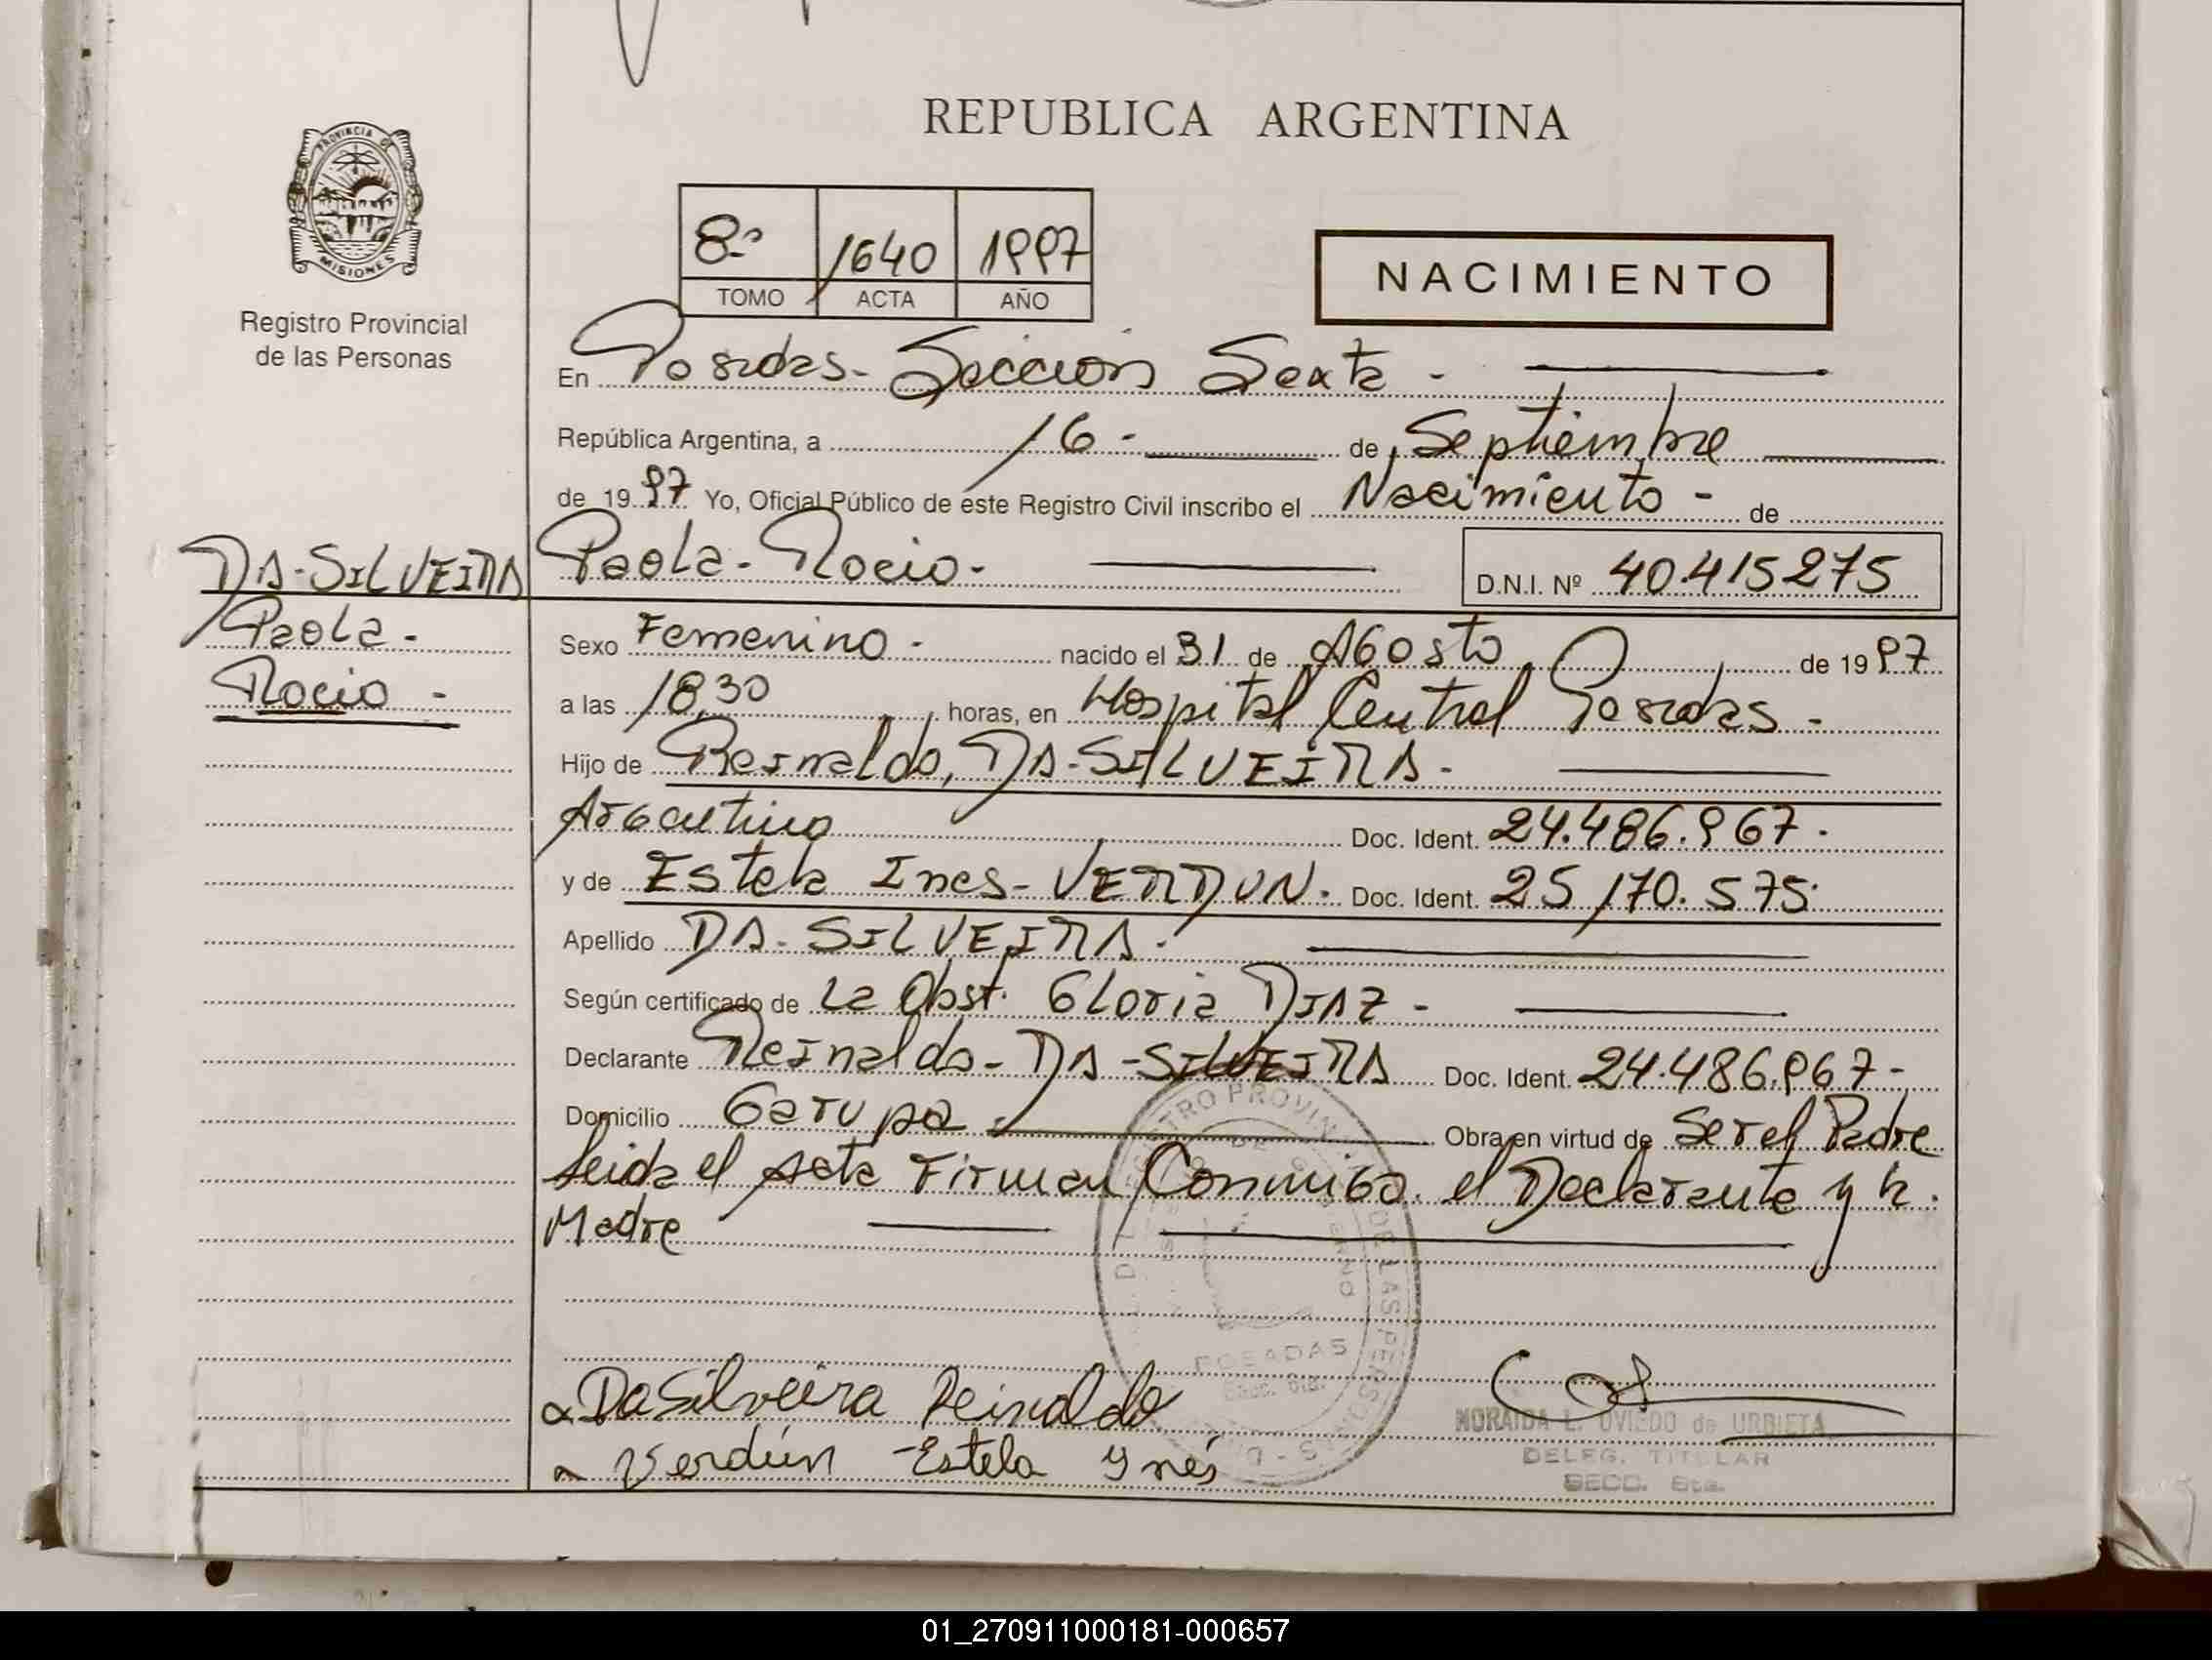 REPUBLICA ARGENTINA
PROVINCIA DE
MISIONES
Registro Provincial
de las Personas
8º 1640 1997
TOMO ACTA AÑO
NACIMIENTO
En Posadas - Sección Sexta -
República Argentina, a 16 - de Septiembre
de 1997 Yo, Oficial Público de este Registro Civil inscribo el Nacimiento - de
Paola - Rocio - D.N.I. Nº 40.415275
DA-SILVEIRA
Paola -
Rocio -
Sexo Femenino - nacido el 31 de Agosto de 1997
a las 18,30 horas, en Hospital Central Posadas -
Hijo de Reinaldo, DA-SILVEIRA -
Argentino Doc. Ident. 24.486.967.
y de Estela Ines - VERDUN. Doc. Ident. 25170.575.
Apellido DA-SILVEIRA.
Según certificado de La Obst. Gloria DIAZ -
Declarante Reinaldo - DA-SILVEIRA Doc. Ident. 24.486.967-
Domicilio Garupa Obra en virtud de Ser el Padre
Leida el Acta Firman Conmigo el Declarante y la
Madre
POSADAS
Secc. 6ta.
DaSilveira Reinaldo
Verdún Estela Ynés
NORAIDA L. OVIEDO de URBIETA
DELEG. TITULAR
SECC. 6ta.
01_270911000181-000657